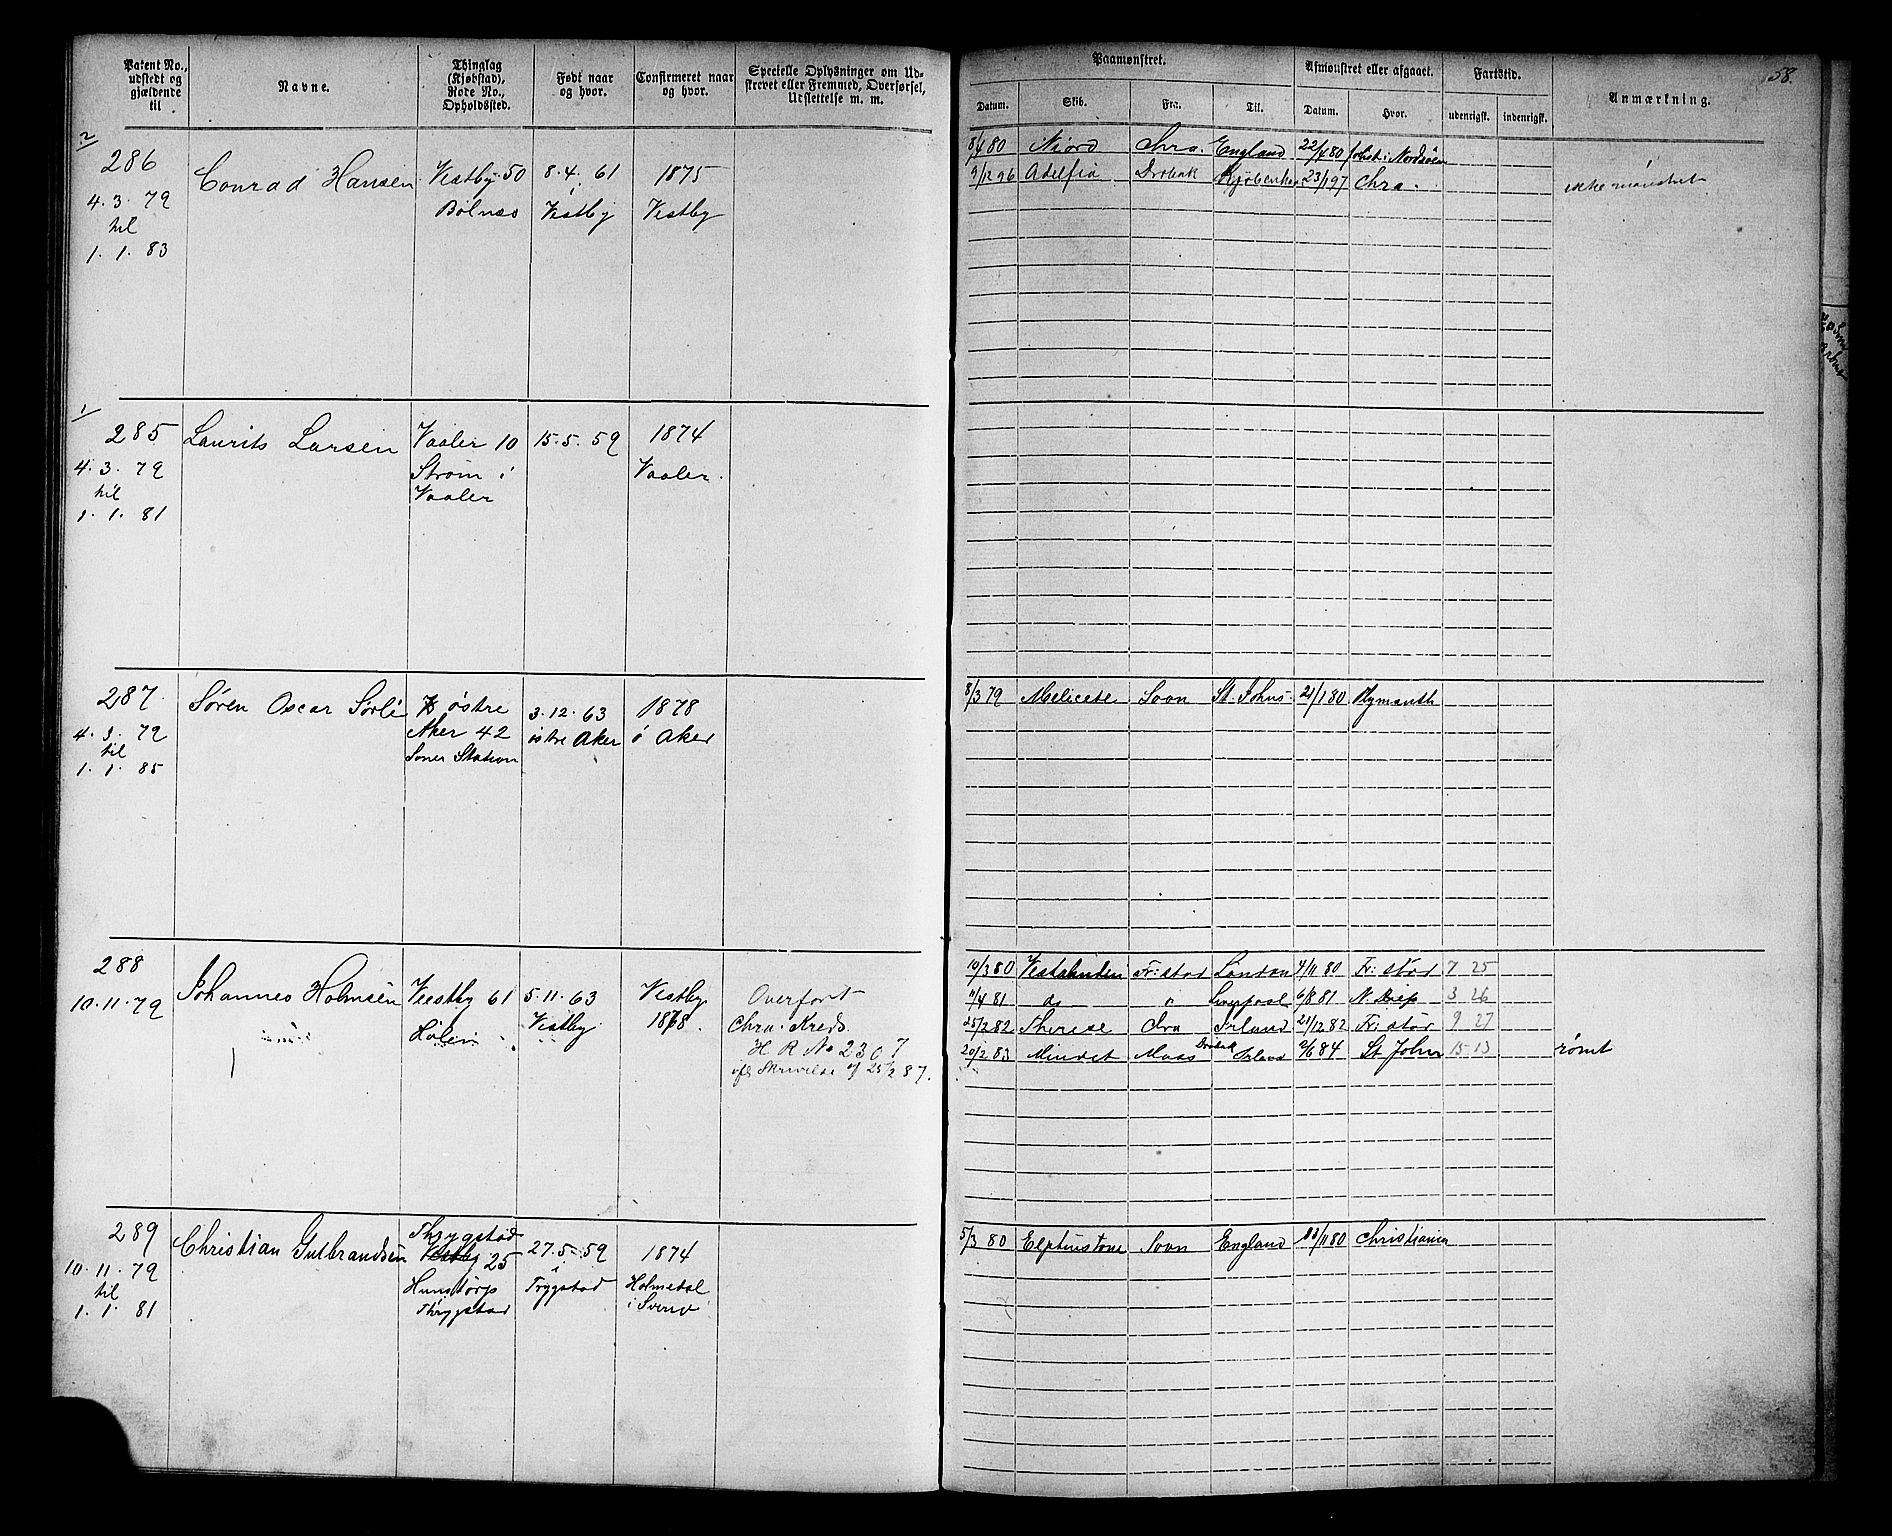 58.
Patent No., udstedt og gjældende til
Navne.
Thinglag (Kjøbstad), Rode No., Opholdssted.
Født naar og hvor.
Confirmeret naar og hvor.
Specielle Oplysninger om Udskrevet eller Fremmed, Overførsel, Udslettelse m. m.
Paamønstret.
Afmønstret eller afgaaet.
Fartstid.
Anmærkning.
Datum. Skib. Fra. Til. Datum. Hvor. udenrigsk. indenrigsk.
2
286
4. 3. 79
til
1. 1. 83
Conrad Hansen
Vestby 50
Bølnæs
8. 4. 61
Vestby
1875
Vestby
8/4 80 Niord Chra. England 22/4 80 Nordsøen
9/12 96 Adelfia Drøbak Kjøbenhavn 23/1 97 Chra.
ikke mønstret
1
285
4. 3. 79
til
1. 1. 81
Laurits Larsen
Vaaler 10
Strøm i
Vaaler
15. 5. 59
1874
Vaaler.
287
4. 3. 79
til
1. 1. 85
Søren Oscar Sørli
østre
Aker 42
Soner Station
3. 12. 63
østre Aker
1878
ø Aker
8/3 79 Melicete Soon St. Johns 21/1 80 Plymouth
288
10. 11. 79
Johannes Holmsen
Vestby 61
Hølen
5. 11. 63
Vestby
Vestby
1878.
Overført
Chra. Kreds.
H R No 2307
Skrivelse af 25/2 87.
10/3 80 Vestalinden Fr:stad London 4/11 80 Fr:stad 7 25
11/4 81 do " Liverpool 6/8 81 N. Diep 3 26
25/2 82 Therese Chra Irland 21/12 82 Fr:stad 9 27
20/2 83 Mindet Moss Drøbak Irland 2/6 84 St John 15 13 rømt
289
10. 11. 79
til
1. 1. 81
Christian Gulbrandsen
Thrygstad
Vestby 25
Hunstorp
Thrygstad
27. 5. 59
Trygstad
1874
Holmedal
i Sverig
5/3 80 Elphinstone Soon England 13/11 80 Christiania